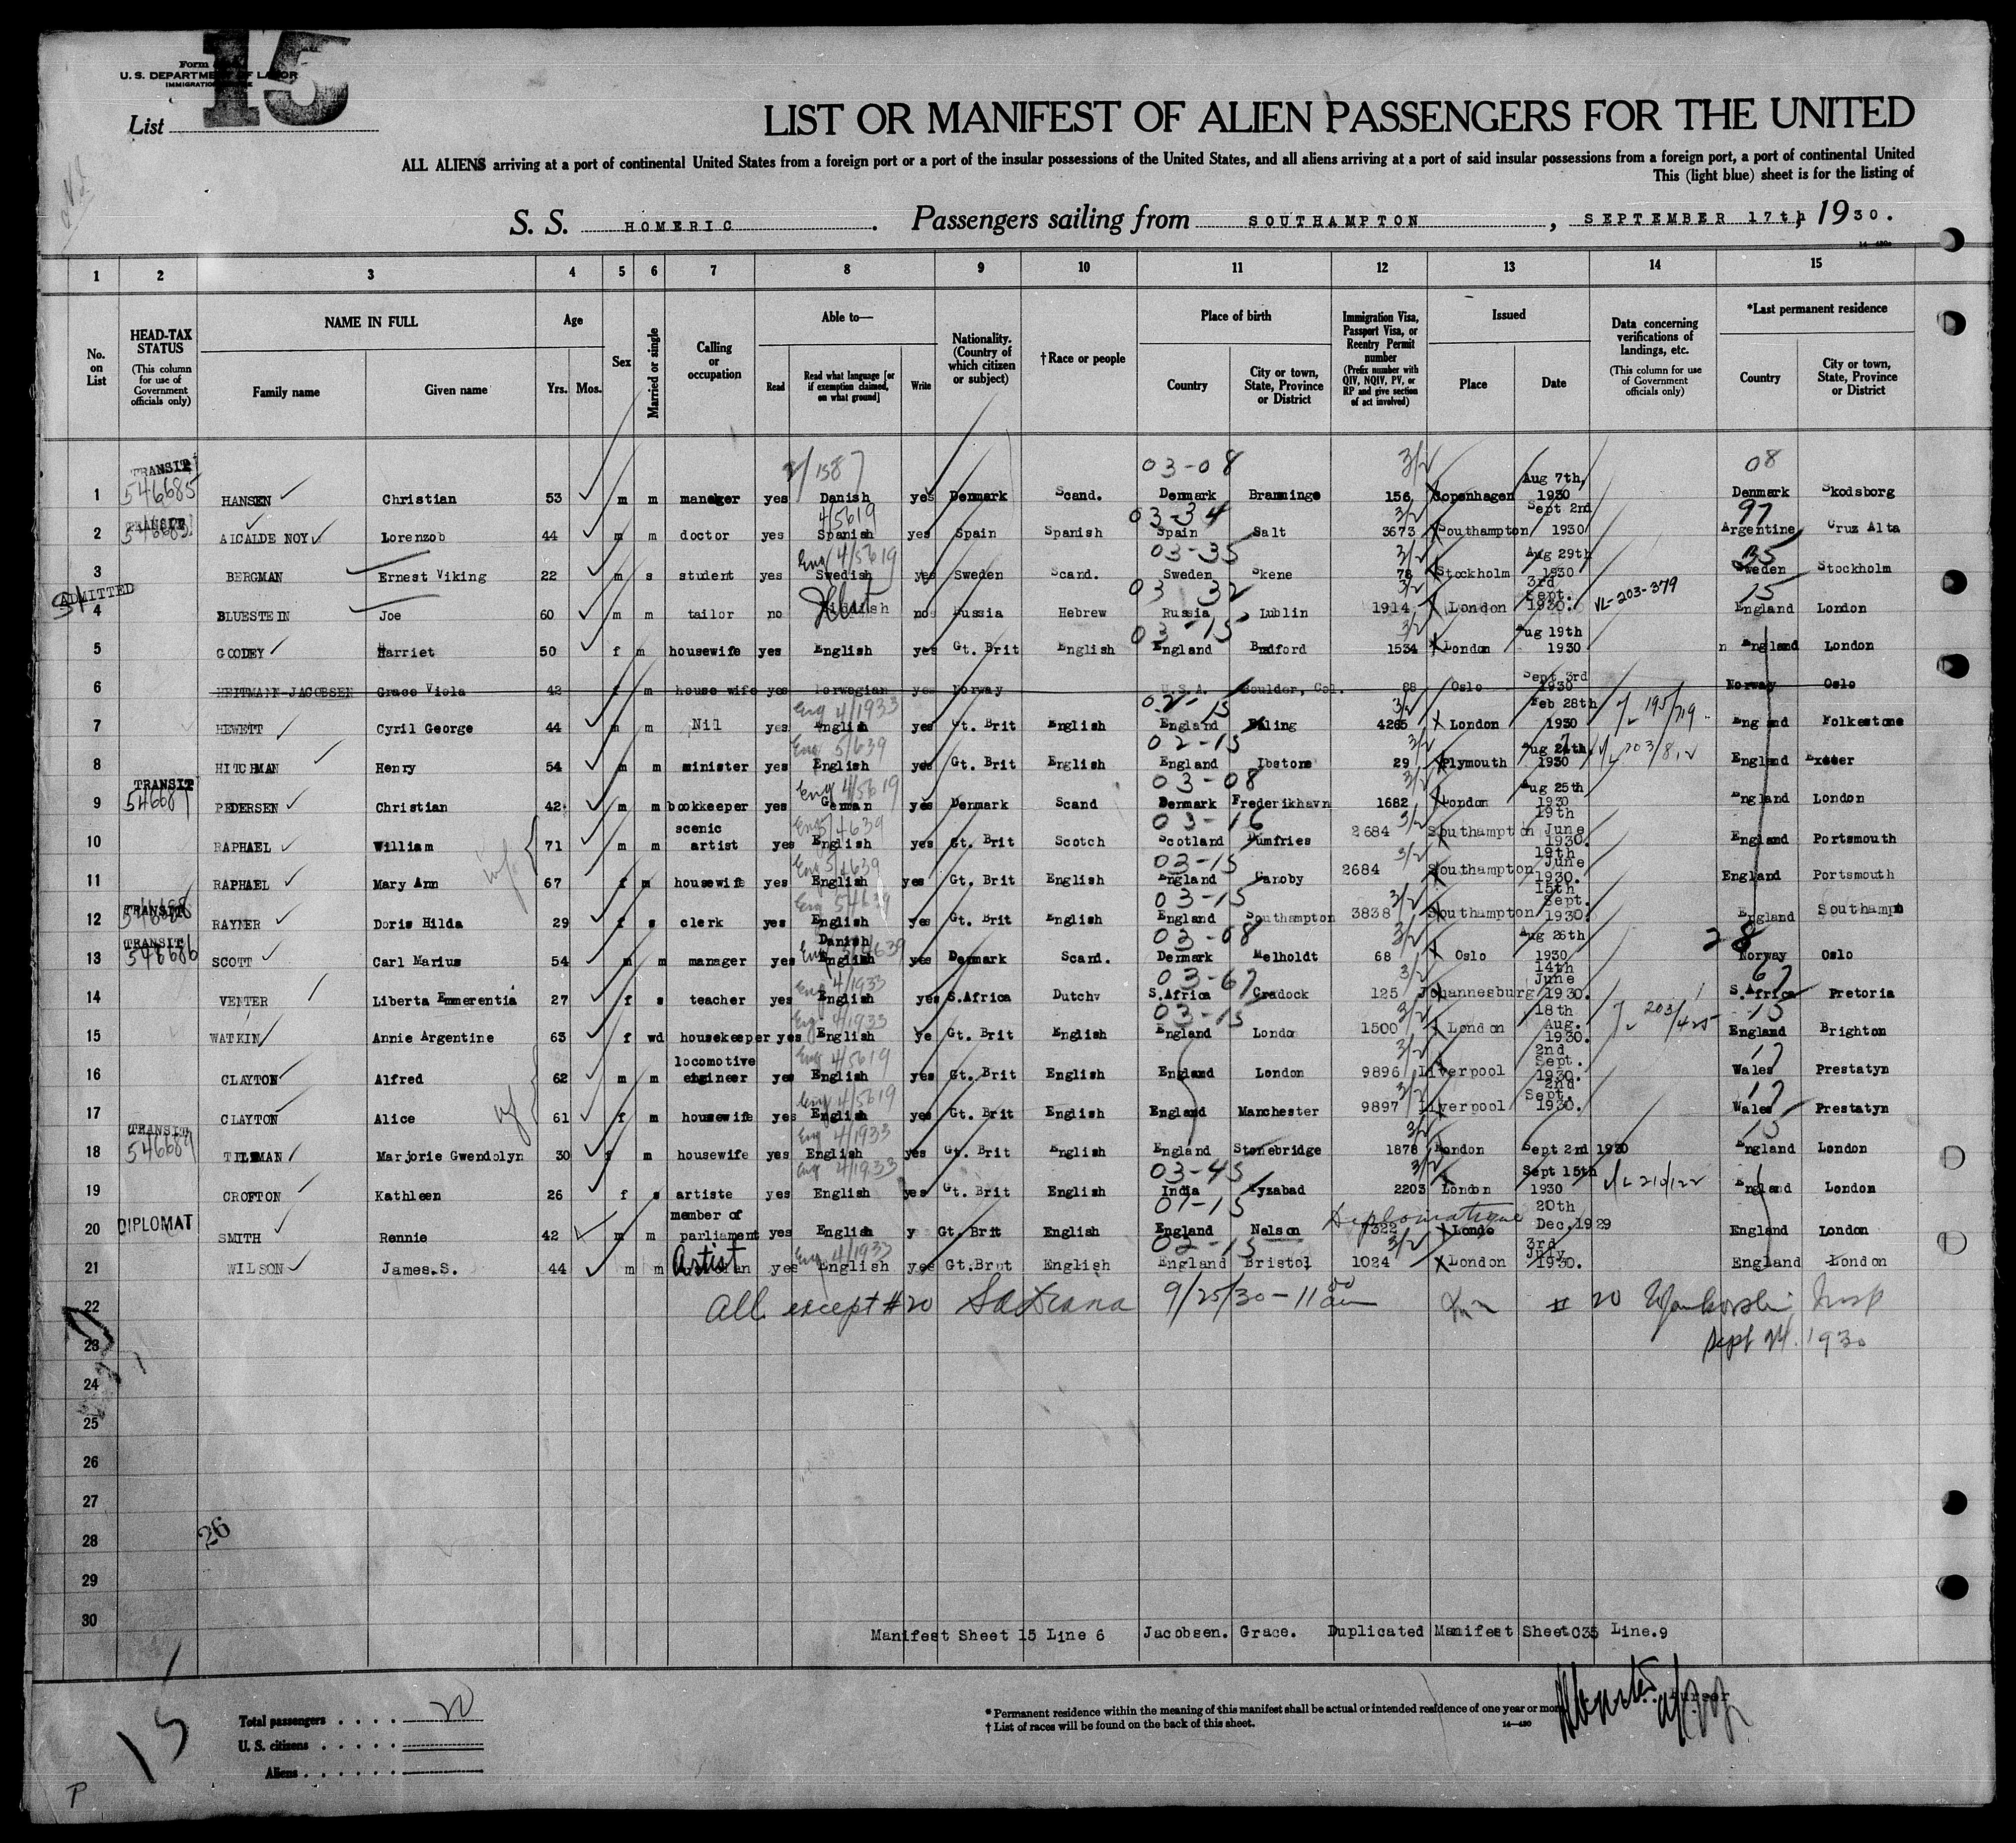 15
Form
U. S. DEPARTMENT OF LABOR
IMMIGRATION
List
LIST OR MANIFEST OF ALIEN PASSENGERS FOR THE UNITED
ALL ALIENS arriving at a port of continental United States from a foreign port or a port of the insular possessions of the United States, and all aliens arriving at a port of said insular possessions from a foreign port, a port of continental United
This (light blue) sheet is for the listing of
S. S. HOMERIC. Passengers sailing from SOUTHAMPTON, SEPTEMBER 17th, 1930.
1 2 3 4 5 6 7 8 9 10 11 12 13 14 15
No. on List
HEAD-TAX STATUS (This column for use of Government officials only)
NAME IN FULL
Family name Given name
Age
Yrs. Mos.
Sex
Married or single
Calling or occupation
Able to—
Read
Read what language [or if exemption claimed, on what ground]
Write
Nationality. (Country of which citizen or subject)
†Race or people
Place of birth
Country
City or town, State, Province or District
Immigration Visa, Passport Visa, or Reentry Permit number (Prefix number with QIV, NQIV, PV, or RP and give section of act involved)
Issued
Place Date
Data concerning verifications of landings, etc. (This column for use of Government officials only)
*Last permanent residence
Country
City or town, State, Province or District
TRANSIT 3/1587 03-08 3/2 Aug 7th, 08
1 546685 HANSEN Christian 53 m m manager yes Danish yes Denmark Scand. Denmark Bramminge 156 Copenhagen 1930 Denmark Skodsborg
TRANSIT 4/5619 03-34 3/2 Sept 2nd 97
2 ALCALDE NOY Lorenzob 44 m m doctor yes Spanish yes Spain Spanish Spain Salt 3673 Southampton 1930 Argentine Cruz Alta
Eng 4/5619 03-35 3/2 Aug 29th 35
3 BERGMAN Ernest Viking 22 m s student yes Swedish yes Sweden Scand. Sweden Skene 78 Stockholm 1930 Sweden Stockholm
ADMITTED 03 32 3/2 3rd Sept. VL-203-379 15
4 BLUESTEIN Joe 60 m m tailor no Yiddish no Russia Hebrew Russia Lublin 1914 London 1930. England London
03-15 3/2 Aug 19th
5 GOODEY Harriet 50 f m housewife yes English yes Gt. Brit English England Bradford 1534 London 1930 n England London
Sept 3rd
6 HEITMANN-JACOBSEN Grace Viola 42 f m house wife yes Norwegian yes Norway U.S.A. Boulder, Col. 88 Oslo 1930 Norway Oslo
Eng 4/1933 02-15 3/2 Feb 28th 195/719
7 HEWETT Cyril George 44 m m Nil yes English yes Gt. Brit English England Ealing 4265 London 1930 England Folkestone
Eng 5/639 02-15 3/2 Aug 24th
8 HITCHMAN Henry 54 m m minister yes English yes Gt. Brit English England Ibstone 29 Plymouth 1930 England Exeter
TRANSIT Eng 4/5619 03-08 3/2 Aug 25th
9 PEDERSEN Christian 42 m m bookkeeper yes German yes Denmark Scand Denmark Frederikhavn 1682 London 1930 England London
scenic 03-16 3/2 19th June
10 RAPHAEL William 71 m m artist yes English yes Gt. Brit Scotch Scotland Dumfries 2684 Southampton 1930. England Portsmouth
03-15 3/2 19th June
11 RAPHAEL Mary Ann 67 f m housewife yes English yes Gt. Brit English England Canoby 2684 Southampton 1930. England Portsmouth
TRANSIT 03-15 3/2 15th Sept.
12 RAYNER Doris Hilda 29 f s clerk yes English yes Gt. Brit English England Southampton 3838 Southampton 1930. England Southamp
TRANSIT Danish 03-08 3/2 Aug 26th 28
13 546686 SCOTT Carl Marius 54 m m manager yes English yes Denmark Scand. Denmark Melholdt 68 Oslo 1930 Norway Oslo
4/1933 03-67 3/2 14th June 67
14 VENTER Liberta Emmerentia 27 f s teacher yes English yes S.Africa Dutchv S.Africa Cradock 125 Johannesburg 1930. S.Africa Pretoria
Eng 4/1933 03-15 3/2 18th Aug. 203/425 15
15 WATKIN Annie Argentine 63 f wd housekeeper yes English ye Gt. Brit English England Londo 1500 London 1930. England Brighton
locomotive Eng 4/5619 3/2 2nd Sept. 17
16 CLAYTON Alfred 62 m m engineer yes English yes Gt. Brit English England London 9896 Liverpool 1930. Wales Prestatyn
Eng 4/5619 3/2 2nd Sept. 17
17 CLAYTON Alice 61 f m housewife yes English yes Gt. Brit English England Manchester 9897 Liverpool 1930. Wales Prestatyn
TRANSIT Eng 4/1933 3/2 15
18 546689 TILLMAN Marjorie Gwendolyn 30 f m housewife yes English yes Gt. Brit English England Stonebridge 1878 London Sept 2nd 1930 England London
Eng 4/1933 03-45 3/2 Sept 15th
19 CROFTON Kathleen 26 f s artiste yes English yes Gt. Brit English India Fyzabad 2203 London 1930 England London
member of 01-15 Diplomatique 20th
20 DIPLOMAT SMITH Rennie 42 m m parliament yes English y Gt. Brit English England Nelson 7322 Londo Dec. 1929 England London
Eng 4/1933 02-15 3/2 3rd July
21 WILSON James.S. 44 m m Artist yes English yes Gt.Brut English England Bristol 1024 London 1930. England London
22 All except #20 9/25/30 - 11 00 am # 20 Insp
23 Sept 24. 1930
24
25
26
27
28
26
29
30
Manifest Sheet 15 Line 6 Jacobsen. Grace. Duplicated Manifest Sheet C35 Line.9
Purser
15
Total passengers . . . . 20
U. S. citizens . . . . .
Aliens . . . . . .
* Permanent residence within the meaning of this manifest shall be actual or intended residence of one year or more.
† List of races will be found on the back of this sheet.
14—480
P